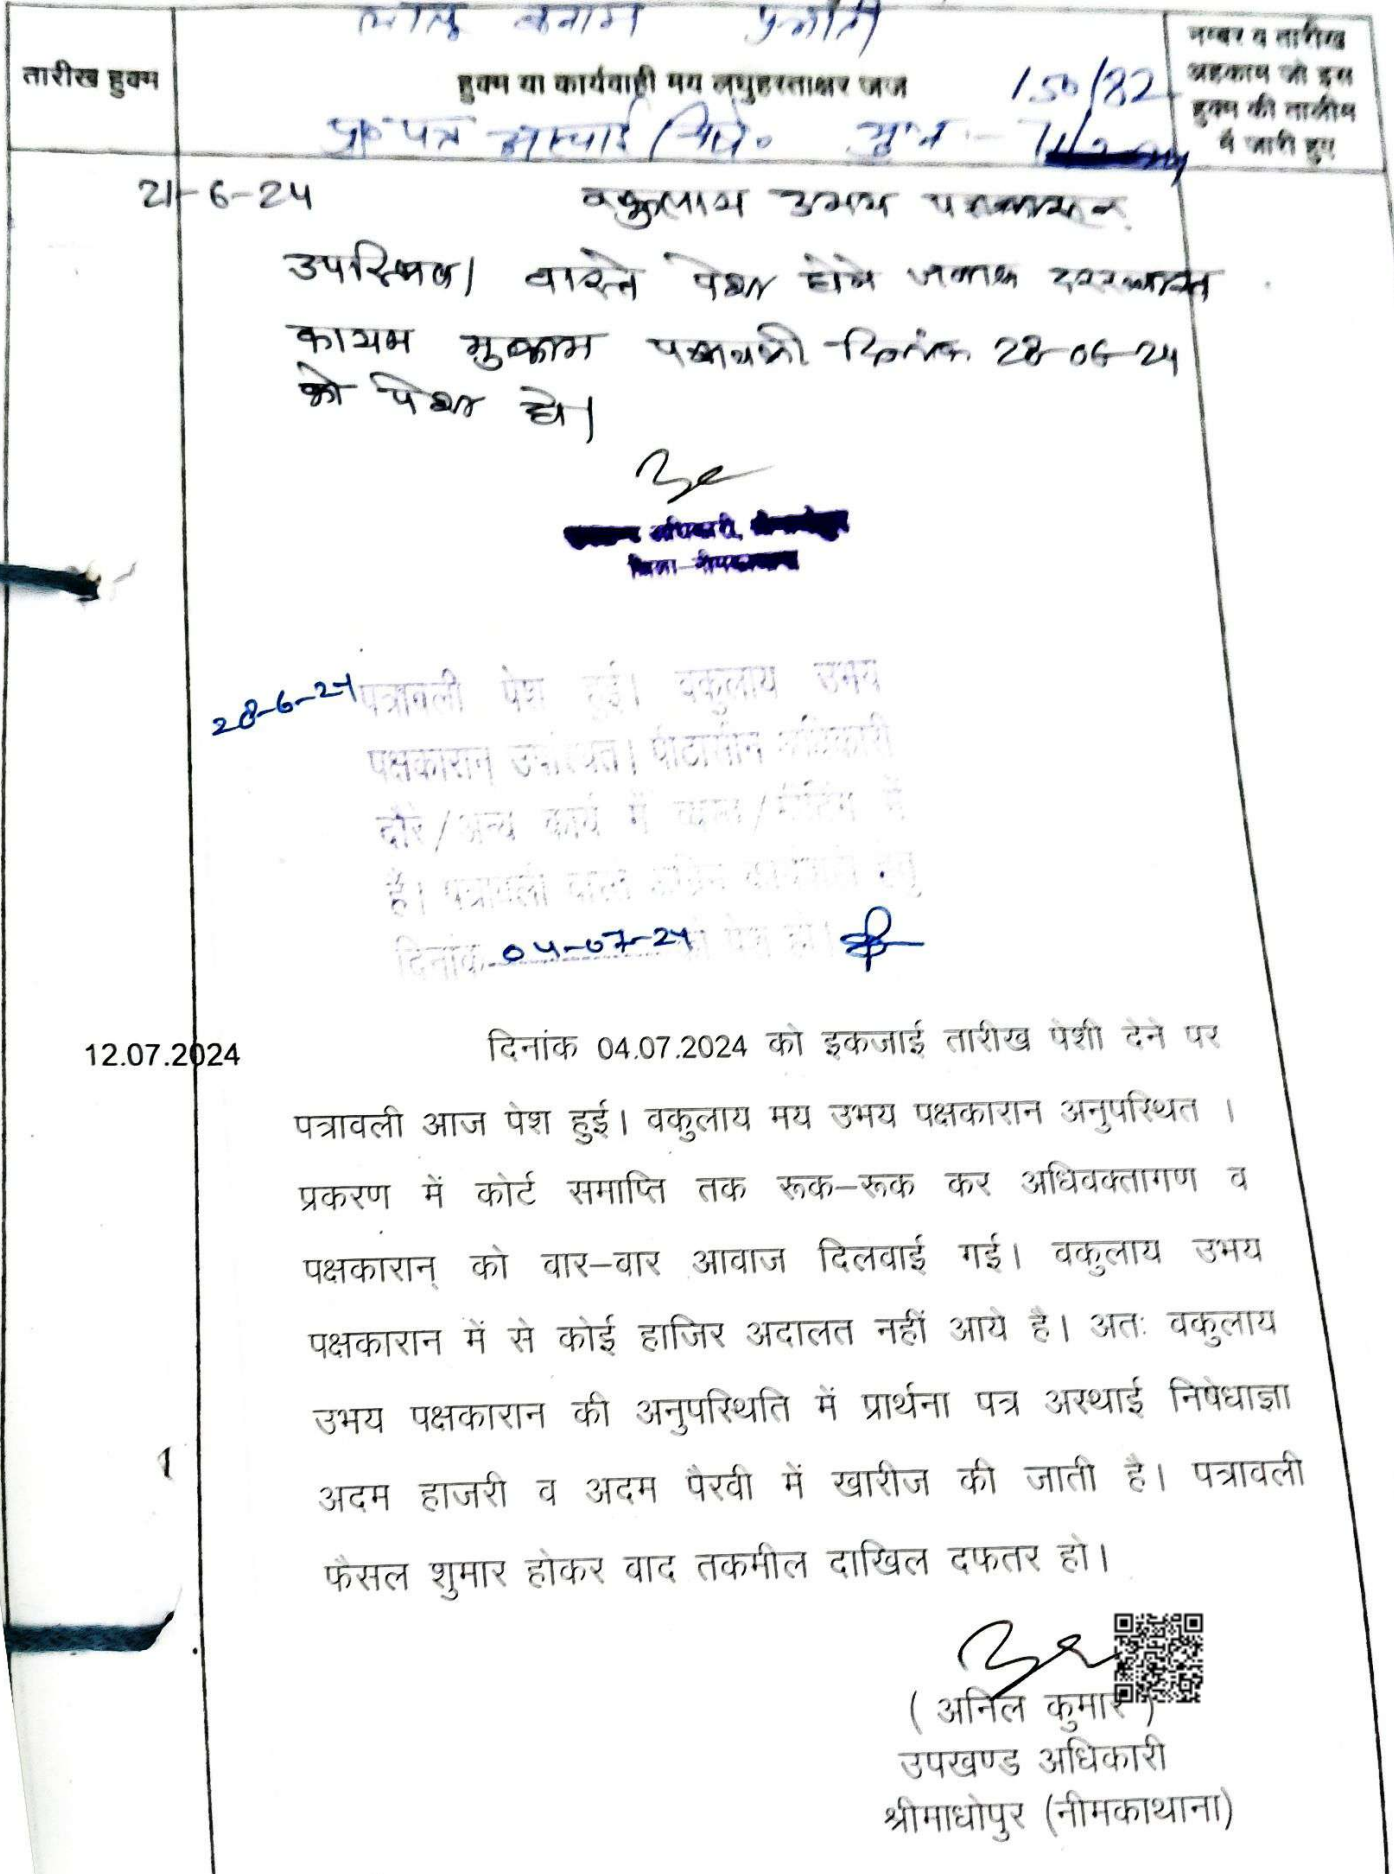 लालू बनाम
तारीख हुक्म
हुक्म या कार्यवाही मय लघुहस्ताक्षर जज
150/82
नम्बर व तारीख
अहकाम जो इस
हुक्म की तामील
में जारी हुए
प्रा० पत्र अस्थाई निषे०
21-6-24
वकुलाय उभय पक्षकारान
उपस्थित। वास्ते पेश होने जवाब दरख्वास्त
कायम मुकाम पत्रावली दिनांक 28-06-24
को पेश हो।
अधिकारी,
जिला-नीमकाथाना
28-6-24
पत्रावली पेश हुई। वकुलाय उभय
पक्षकारान् उपस्थित। पीठासीन अधिकारी
दौरे/अन्य कार्य में व्यस्त/मीटिंग में
है। पत्रावली वास्ते अग्रिम कार्यवाही हेतु
दिनांक 04-07-24 को पेश हो।
12.07.2024
दिनांक 04.07.2024 को इकजाई तारीख पेशी देने पर
पत्रावली आज पेश हुई। वकुलाय मय उभय पक्षकारान अनुपस्थित ।
प्रकरण में कोर्ट समाप्ति तक रूक–रूक कर अधिवक्तागण व
पक्षकारान् को वार–वार आवाज दिलवाई गई। वकुलाय उभय
पक्षकारान में से कोई हाजिर अदालत नहीं आये है। अतः वकुलाय
उभय पक्षकारान की अनुपस्थिति में प्रार्थना पत्र अस्थाई निषेधाज्ञा
अदम हाजरी व अदम पैरवी में खारीज की जाती है। पत्रावली
फैसल शुमार होकर वाद तकमील दाखिल दफतर हो।
( अनिल कुमार )
उपखण्ड अधिकारी
श्रीमाधोपुर (नीमकाथाना)